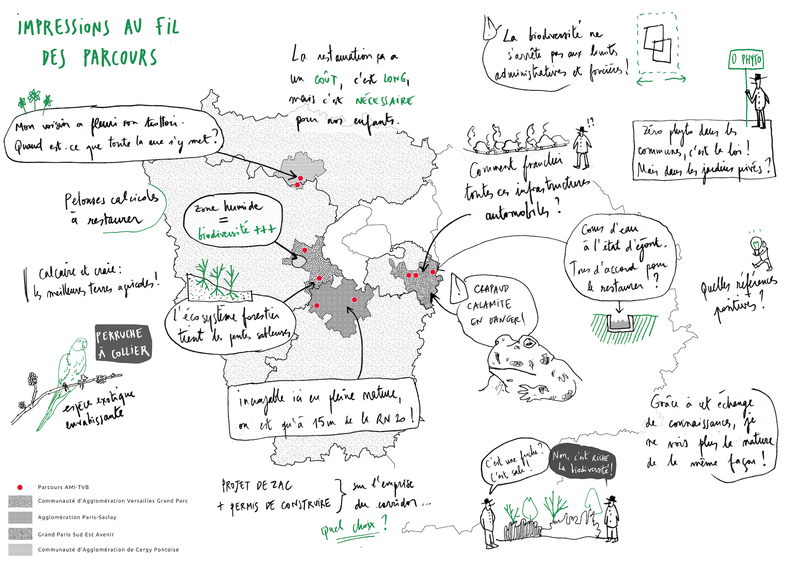 IMPRESSIONS AU FIL
DES PARCOURS
La restauration ça a
un COÛT, c'est LONG,
mais c'est NÉCESSAIRE
pour nos enfants.
La biodiversité ne
s'arrête pas aux limites
administratives et foncières !
O PHYTO
Zéro phyto dans les
communes, c'est la loi !
Mais dans les jardins privés ?
Mon voisin a fleuri son trottoir.
Quand est-ce que toute la rue s'y met ?
!?
Comment franchir
toutes ces infrastructures
automobiles ?
Pelouses calcicoles
à restaurer
zone humide
=
biodiversité +++
Cours d'eau
à l'état d'égout.
Tous d'accord pour
le restaurer ?
Calcaire et craie :
les meilleures terres agricoles !
CRAPAUD
CALAMITE
EN DANGER !
Quelles références
positives ?
L'écosystème forestier
tient les pentes sableuses
PERRUCHE
À COLLIER
espèce exotique
envahissante
incroyable ici en pleine nature,
on est qu'à 15m de la RN 20 !
Grâce à cet échange
de connaissance, je
ne vois plus la nature
de la même façon !
C'est une friche ?
C'est sale !
Non, c'est RICHE
la biodiversité !
PROJET DE ZAC
+ PERMIS DE CONSTRUIRE
sur l'emprise
du corridor...
quel choix ?
Parcours AMI-TVB
Communauté d'Agglomération Versailles Grand Parc
Agglomération Paris-Saclay
Grand Paris Sud Est Avenir
Communauté d'Agglomération de Cergy Pontoise